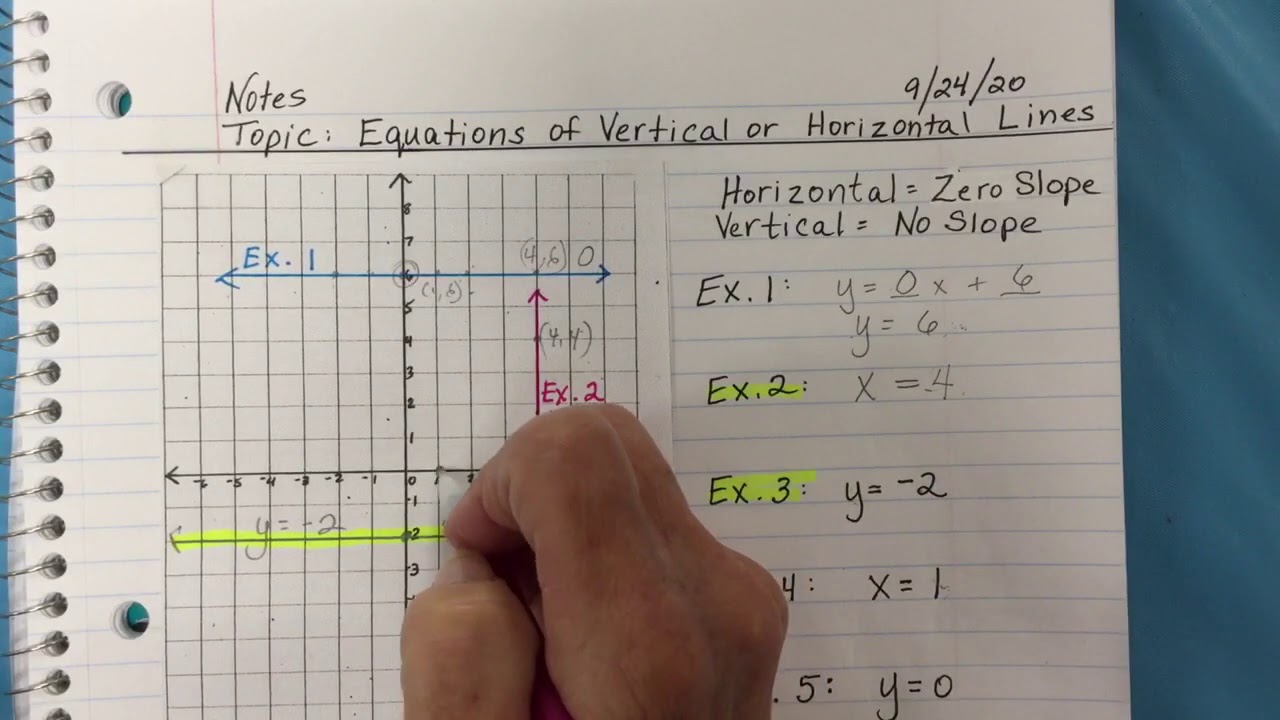 Notes
9/24/20
Topic: Equations of Vertical or Horizontal Lines
Horizontal = Zero Slope
Vertical = No Slope
Ex. 1
(4,6) 0
(1,6)
(4,4)
Ex. 2
y = -2
8
7
6
5
4
3
2
1
-6 -5 -4 -3 -2 -1 0
-1
-2
-3
Ex. 1: y = 0 x + 6
y = 6
Ex. 2: x = 4
Ex. 3: y = -2
4: x = 1
. 5: y = 0